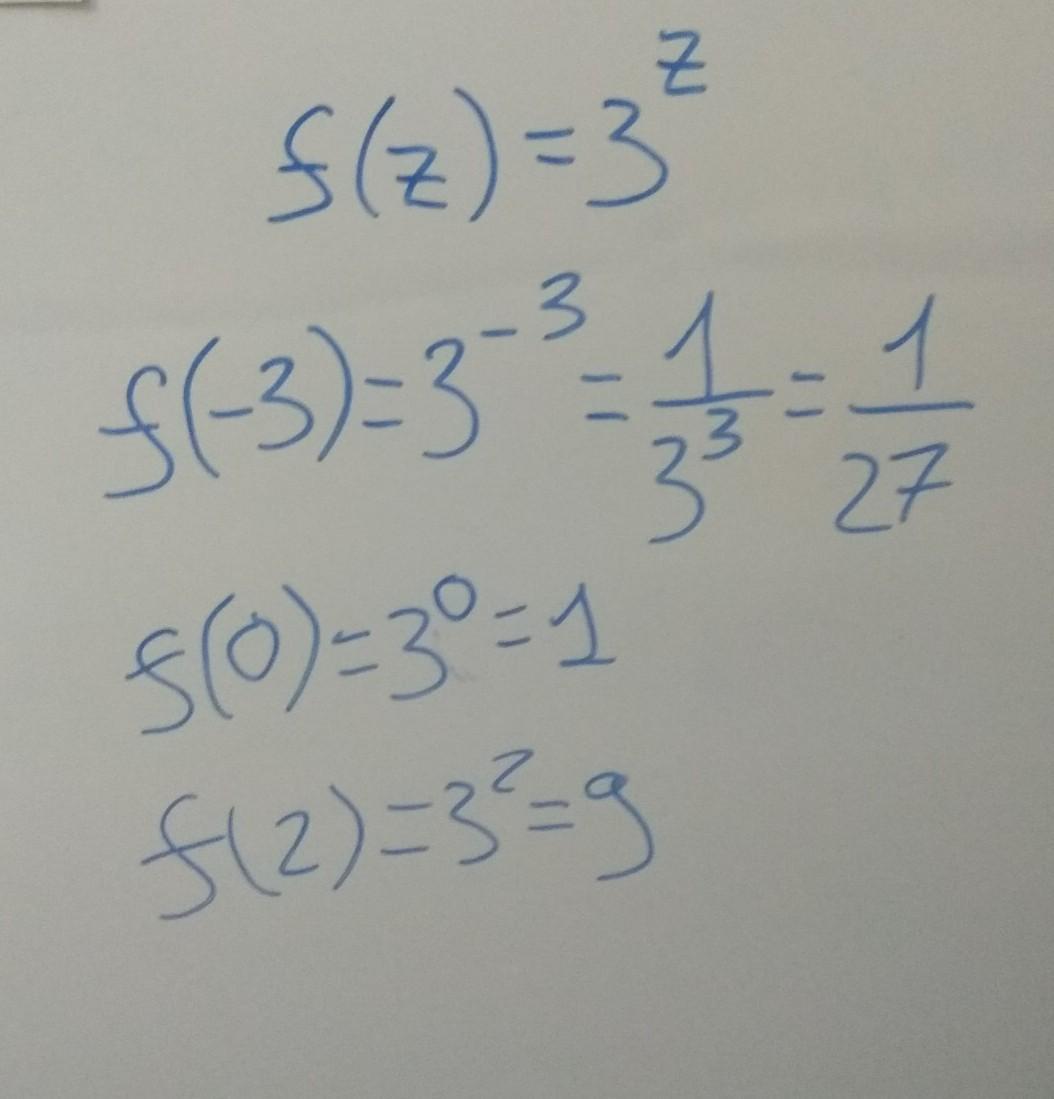 f(z) = 3^z
f(-3) = 3^-3 = 1/3^3 = 1/27
f(0) = 3^0 = 1
f(2) = 3^2 = 9